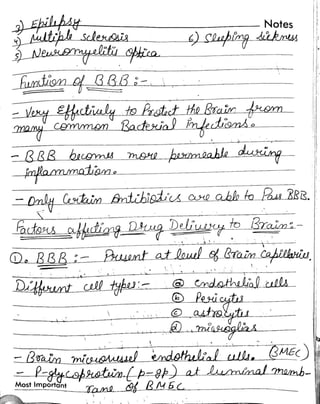 Notes
3) Epilepsy
4) Multiple sclerosis
6) Sleeping sickness
5) Neuromyelitis optica.
Function of BBB :-
- Very Effectively to Protect the Brain from
many common Bacterial infections.
- BBB becomes more permeable during
inflammation.
- Only Certain Antibiotics are able to Pass BBB.
Factors affecting Drug Delivery to Brain:-
①. BBB :- Present at level of Brain Capillaries.
Different cell types:- ⓐ endothelial cells
ⓑ Pericytes
ⓒ astrocytes
ⓓ microglias
- Brain microvessel endothelial cells. (BMEC)
- P-glycoprotein (p-gp) at luminal memb-
Most Important
of BMEC.